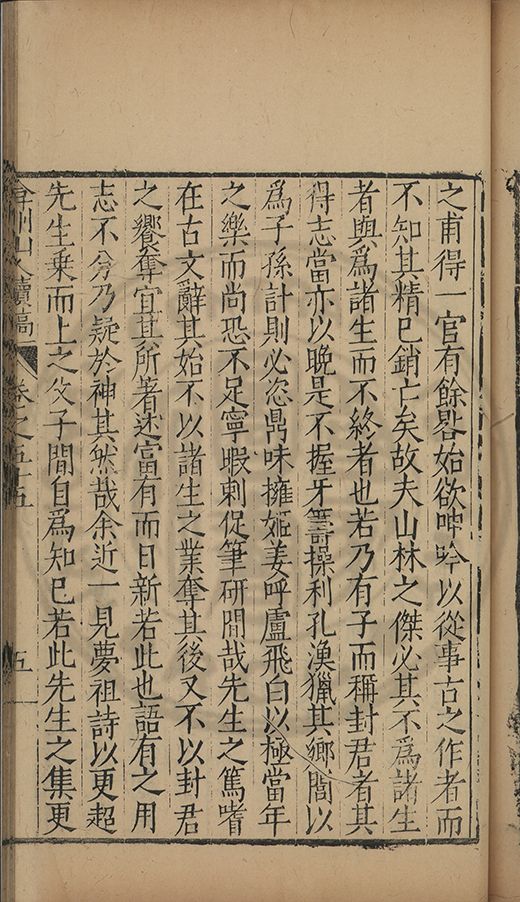 之甫得一官有餘畧始欲呻吟以從事古之作者而
不知其精已銷亡矣故夫山林之傑必其不爲諸生
者與爲諸生而不終者也若乃有子而稱封君者其
得志當亦以晚是不握牙籌操利孔漁獵其鄉閭以
爲子孫計則必恣鼎味擁姬姜呼盧飛白以極當年
之樂而尚恐不足寧暇刺促筆研間哉先生之篤嗜
在古文辭其始不以諸生之業奪其後又不以封君
之饗奪宜其所著述富有而日新若此也語有之用
志不分乃疑於神其然哉余近一見夢祖詩以更超
先生乗而上之父子間自爲知已若此先生之集更
弇州山人續稿 卷之五十五 五